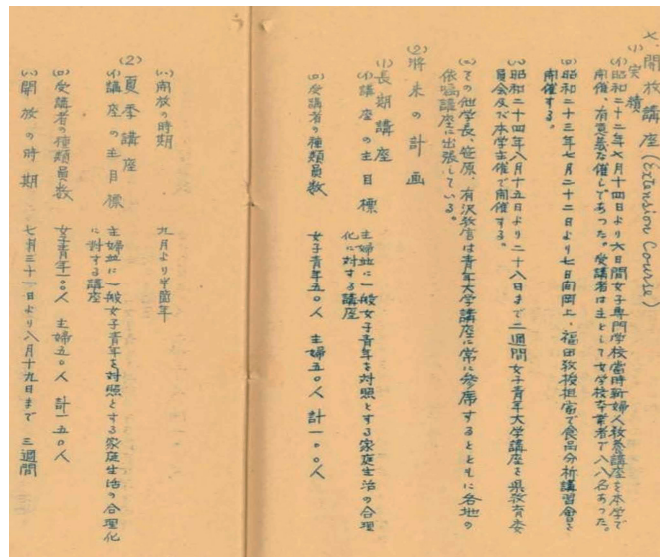 七、開放講座(Extension Course)
(1)実績
(イ)昭和二十二年七月十四日より六日間女子専門学校当時新婦人教養講座を本学で
開催、有意義な催しであつた。受講者は主として女学校卒業者で八八名あつた。
(ロ)昭和二十三年七月二十二日より七日間同上、福田教授担当で食品分析講習会を
開催する。
(ハ)昭和二十四年八月十五日より二十八日まで二週間女子青年大学講座を県教育委
員会及び本学主催で開催する。
その他学長、笹原、有沢教官は青年大学講座に常に参席するとともに各地の
依嘱講座に出張している。
(2)将来の計画
(1)長期講座
(イ)講座の主目標 主婦並に一般女子青年を対照とする家庭生活の合理
化に対する講座
(ロ)受講者の種類員数 女子青年五〇人 主婦五〇人 計一〇〇人
(ハ)開放の時期 九月より半箇年
(2)夏季講座
(イ)講座の主目標 主婦並に一般女子青年を対照とする家庭生活の合理化
に対する講座
(ロ)受講者の種類員数 女子青年一〇〇人 主婦五〇人 計一五〇人
(ハ)開放の時期 七月三十一日より八月十九日まで 三週間